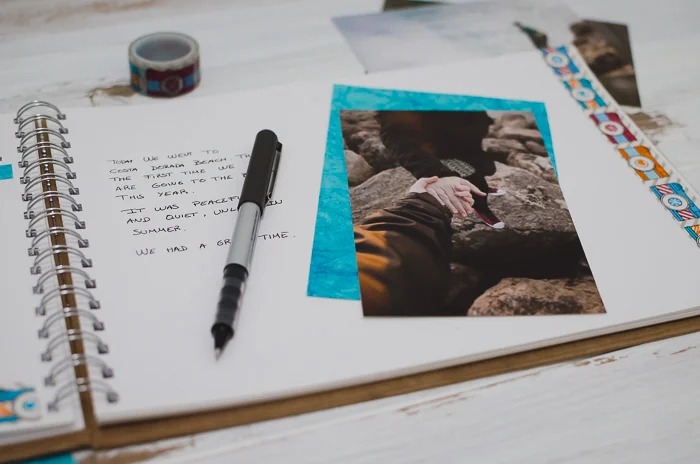 TODAY WE WENT TO
COSTA DORADA BEACH
THE FIRST TIME WE
ARE GOING TO THE
THIS YEAR.
IT WAS PEACEFUL
AND QUIET, IN
SUMMER.
WE HAD A TIME.